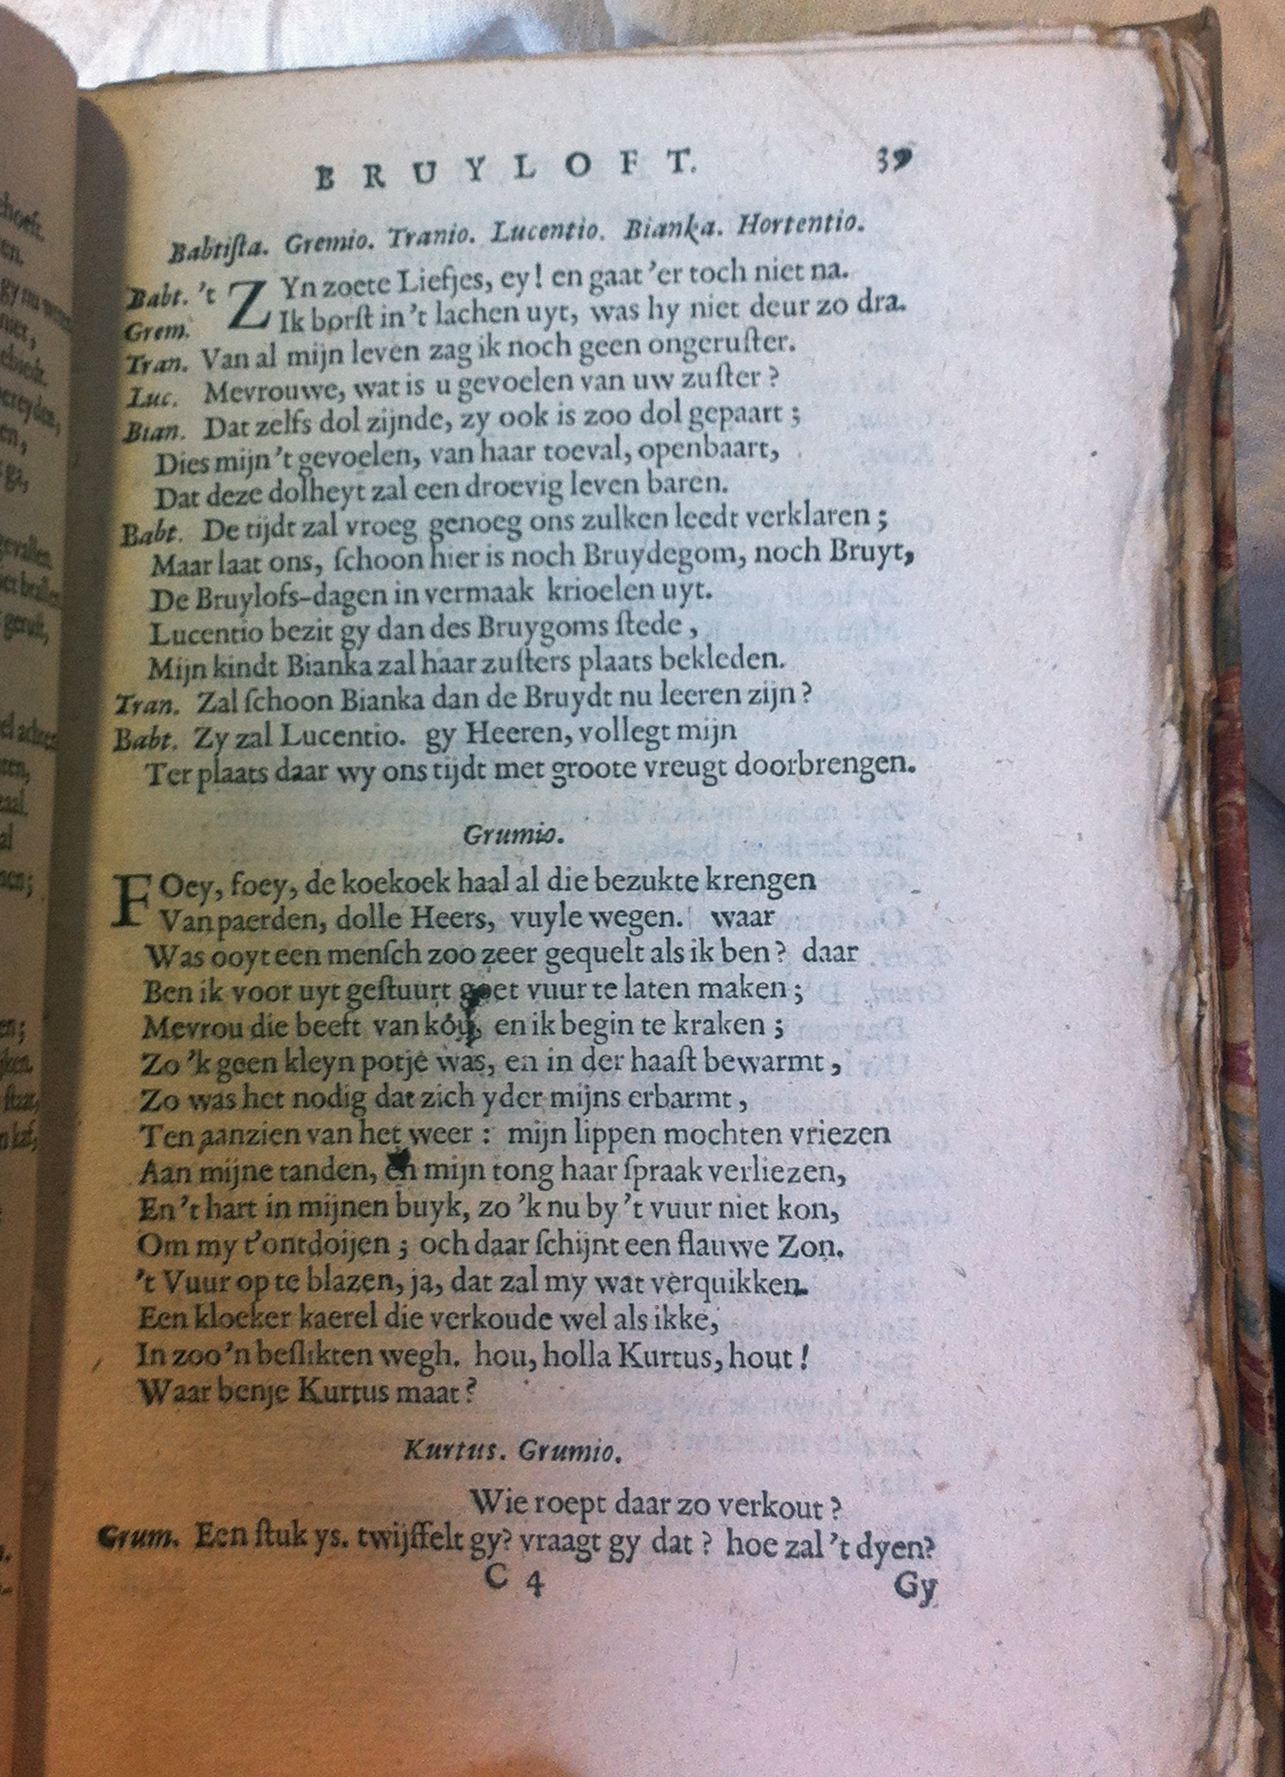 BRUYLOFT. 39
Babtiſta. Gremio. Tranio. Lucentio. Bianka. Hortentio.
Babt. 't ZYn zoete Liefjes, ey! en gaat 'er toch niet na.
Grem. Ik borſt in 't lachen uyt, was hy niet deur zo dra.
Tran. Van al mijn leven zag ik noch geen ongeruſter.
Luc. Mevrouwe, wat is u gevoelen van uw zuſter?
Bian. Dat zelfs dol zijnde, zy ook is zoo dol gepaart;
Dies mijn 't gevoelen, van haar toeval, openbaart,
Dat deze dolheyt zal een droevig leven baren.
Babt. De tijdt zal vroeg genoeg ons zulken leedt verklaren;
Maar laat ons, ſchoon hier is noch Bruydegom, noch Bruyt,
De Bruylofs-dagen in vermaak krioelen uyt.
Lucentio bezit gy dan des Bruygoms ſtede,
Mijn kindt Bianka zal haar zuſters plaats bekleden.
Tran. Zal ſchoon Bianka dan de Bruydt nu leeren zijn?
Babt. Zy zal Lucentio. gy Heeren, vollegt mijn
Ter plaats daar wy ons tijdt met groote vreugt doorbrengen.
Grumio.
FOey, foey, de koekoek haal al die bezukte krengen
Van paerden, dolle Heers, vuyle wegen. waar
Was ooyt een menſch zoo zeer gequelt als ik ben? daar
Ben ik voor uyt geſtuurt goet vuur te laten maken;
Mevrou die beeft van kou, en ik begin te kraken;
Zo 'k geen kleyn potje was, en in der haaſt bewarmt,
Zo was het nodig dat zich yder mijns erbarmt,
Ten aanzien van het weer: mijn lippen mochten vriezen
Aan mijne tanden, en mijn tong haar ſpraak verliezen,
En 't hart in mijnen buyk, zo 'k nu by 't vuur niet kon,
Om my t'ontdoijen; och daar ſchijnt een flauwe Zon.
't Vuur op te blazen, ja, dat zal my wat verquikken.
Een kloeker kaerel die verkoude wel als ikke,
In zoo'n beſlikten wegh. hou, holla Kurtus, hout!
Waar benje Kurtus maat?
Kurtus. Grumio.
Wie roept daar zo verkout?
Grum. Een ſtuk ys. twijffelt gy? vraagt gy dat? hoe zal 't dyen?
C 4 Gy